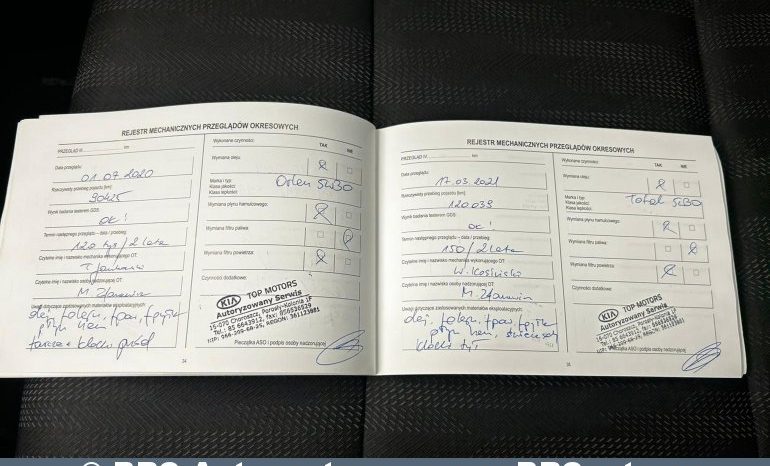 REJESTR MECHANICZNYCH PRZEGLĄDÓW OKRESOWYCH
PRZEGLĄD III km
Data przeglądu:
01.07.2020
Rzeczywisty przebieg pojazdu [km]:
90425
Wynik badania testerem GDS:
OK!
Termin następnego przeglądu – data / przebieg:
120 tys / 2 lata
Czytelne imię i nazwisko mechanika wykonującego OT:
Czytelne imię i nazwisko osoby nadzorującej OT:
M.
Uwagi dotyczące zastosowanych materiałów eksploatacyjnych:
olej, f. oleju, f. pow, f. pyłk
płyn ham
tarcze + klocki przód
Wykonane czynności: TAK NIE
Wymiana oleju:
Marka i typ:
Klasa jakości:
Klasa lepkości:
Orlen 5W30
Wymiana płynu hamulcowego:
Wymiana filtru paliwa:
Wymiana filtru powietrza:
Czynności dodatkowe:
KIA TOP MOTORS
Autoryzowany Serwis
16-070 Choroszcz, Porosły-Kolonia
Pieczątka ASO i podpis osoby nadzorującej
34
REJESTR MECHANICZNYCH PRZEGLĄDÓW OKRESOWYCH
PRZEGLĄD IV km
Data przeglądu:
17.03.2021
Rzeczywisty przebieg pojazdu [km]:
120.039
Wynik badania testerem GDS:
OK!
Termin następnego przeglądu – data / przebieg:
150 / 2 lata
Czytelne imię i nazwisko mechanika wykonującego OT:
W.
Czytelne imię i nazwisko osoby nadzorującej OT:
M.
Uwagi dotyczące zastosowanych materiałów eksploatacyjnych:
olej, f. oleju, f. pow, f. pyłk
płyn ham,
klocki tył
Wykonane czynności: TAK NIE
Wymiana oleju:
Marka i typ:
Klasa jakości:
Klasa lepkości:
Total 5W30
Wymiana płynu hamulcowego:
Wymiana filtru paliwa:
Wymiana filtru powietrza:
Czynności dodatkowe:
KIA TOP MOTORS
Autoryzowany Serwis
16-070 Choroszcz, Porosły-Kolonia
Pieczątka ASO i podpis osoby nadzorującej